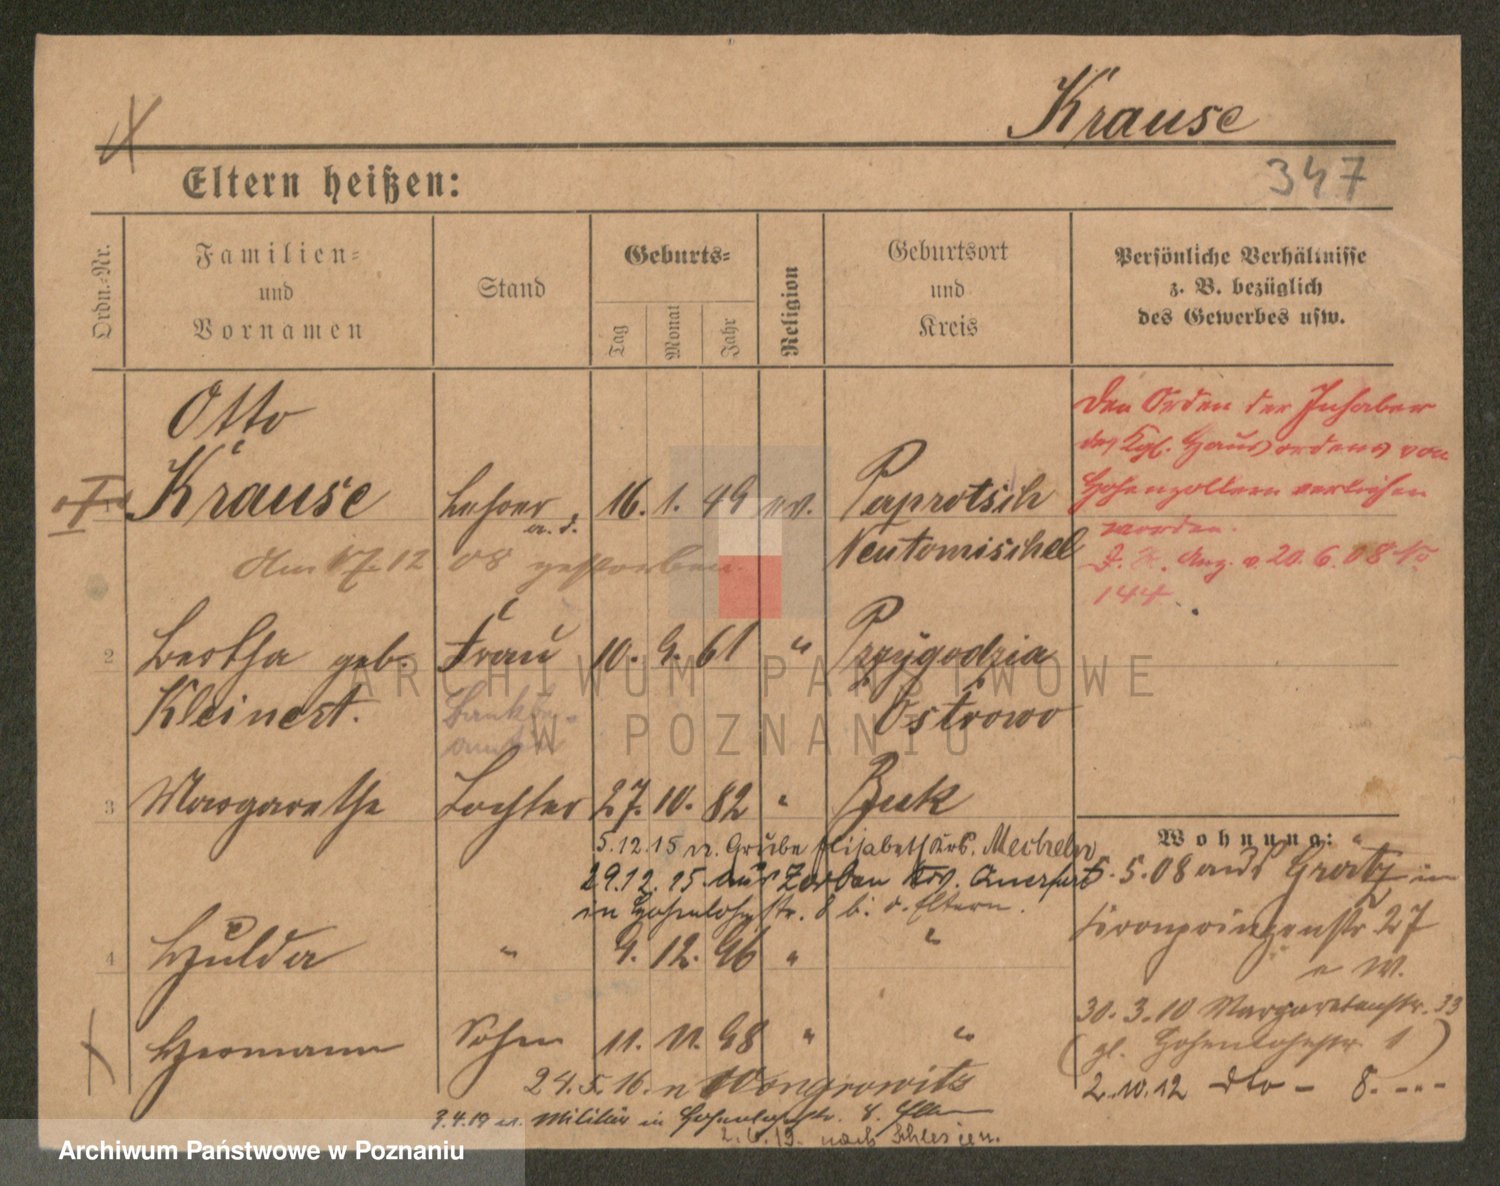 Krause
347
Eltern heißen:
Ordn.-Nr.
Familien-
und
Vornamen
Stand
Geburts-
Tag
Monat
Jahr
Religion
Geburtsort
und
Kreis
Persönliche Verhältnisse
z. B. bezüglich
des Gewerbes usw.
Otto
1 Krause Lehrer a. d. 16. 1. 49 ev. Paprotsch
Neutomischel
am 17.12 08 gestorben.
Den Orden der Inhaber
des Kgl. Hausordens von
Hohenzollern verliehen
worden.
Anz. v. 20.6.08 No
144
2 Bertha geb. Frau 10. 9. 61 " Przygodzia
Kleinert. Ostrowo
3 Margarethe Tochter 27. 10. 82 " Buk
5.12.15 n. Grube Elisabeth Krs.
29.12.15 aus Zorbau Krs. Querfurt
in Hohenlohestr. 8 b. d. Eltern.
4 Hulda " 9. 12. 96 " "
Hermann Sohn 11. 11. 98 " "
24.5.16. n Wongrowitz
3.4.19 v. Militär in Hohenlohestr. 8. Eltern
2.6.19. nach Schlesien.
Wohnung:
5.5.08 aus Grätz in
Kronprinzenstr. 27
30.3.10 Margaretenstr. 33
(gl. Hohenlohestr 1)
2.10.12 dto – 8. ---
ARCHIWUM PAŃSTWOWE
W POZNANIU
Archiwum Państwowe w Poznaniu